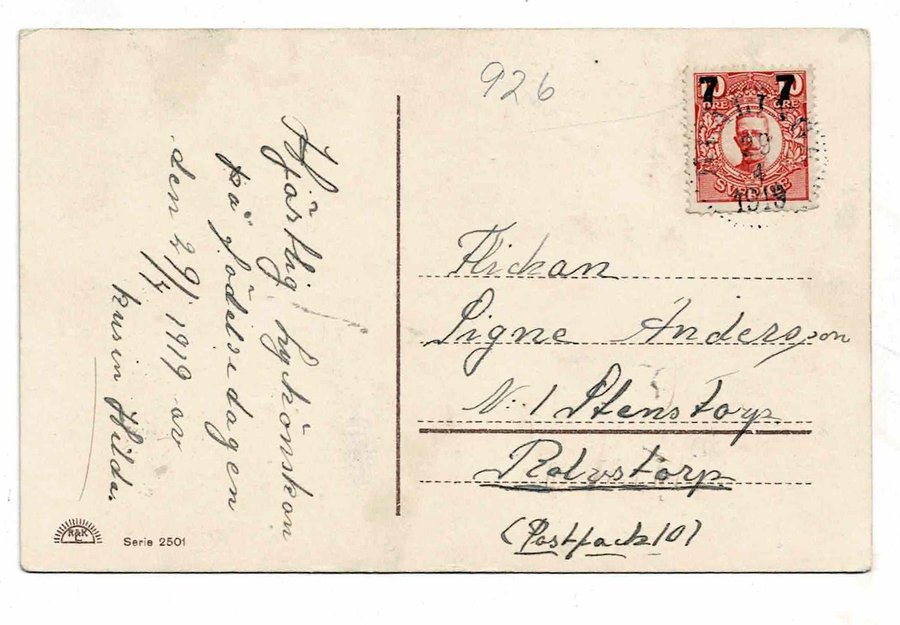 926
7 7
ÖRE ÖRE
SVERIGE
29
4
1919
Hjärtlig lyckönskan
på födelsedagen
den 29/4 1919 av
kusin Hilda.
Flickan
Signe Andersson
N:1 Stenstorp
Rolvstorp
(Postfack 10)
Serie 2501